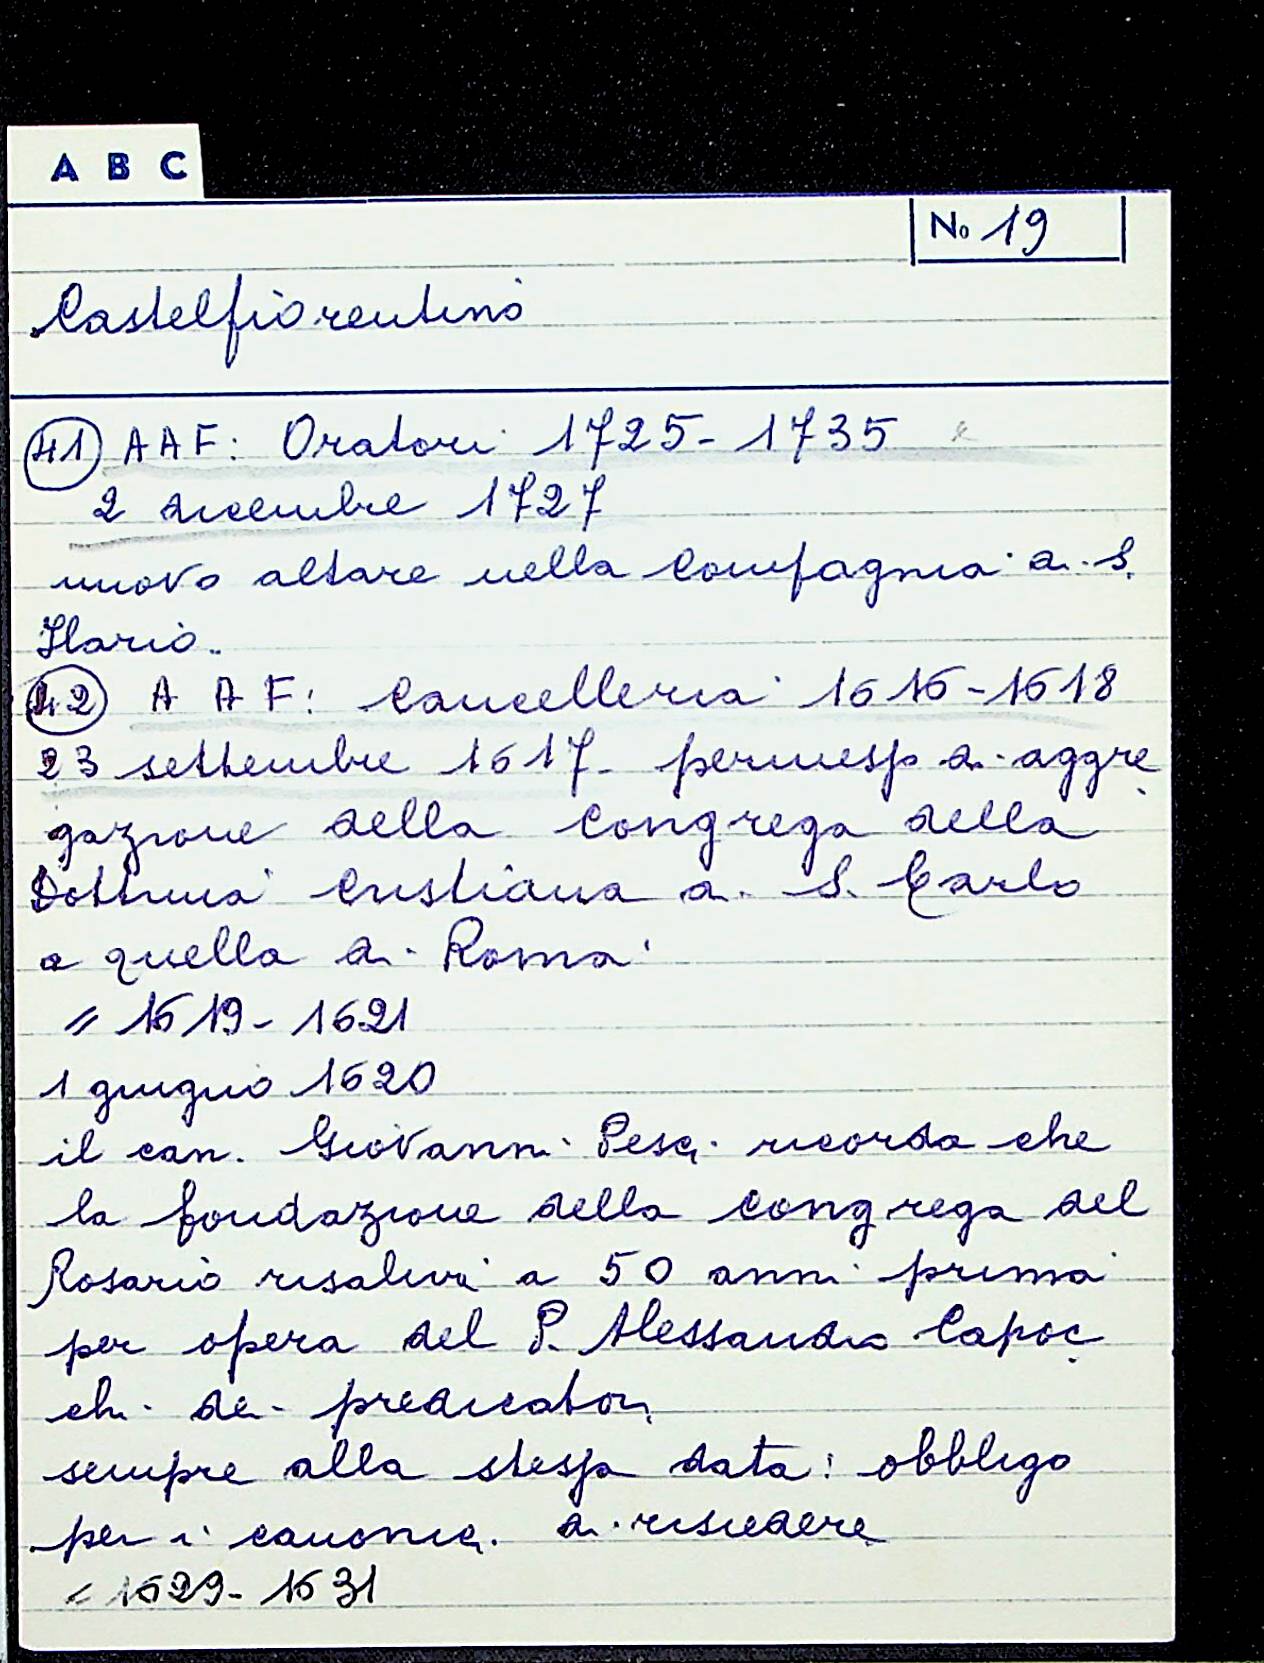 A B C
No 19
Castelfiorentino
41 AAF: Oratori 1725-1735
2 dicembre 1727
nuovo altare nella Compagnia di S.
Ilario.
42 A A F: Cancelleria 1616-1618
23 settembre 1617 - permesso di aggre
gazione della Congrega della
Dottrina Cristiana di S. Carlo
a quella di Roma
" 1619-1621
1 giugno 1620
il can. Giovanni Pesci ricorda che
la fondazione della congrega del
Rosario risaliva a 50 anni prima
per opera del P. Alessandro Capoc
chi dei predicatori
sempre alla stessa data: obbligo
per i canonici di risiedere
" 1629-1631